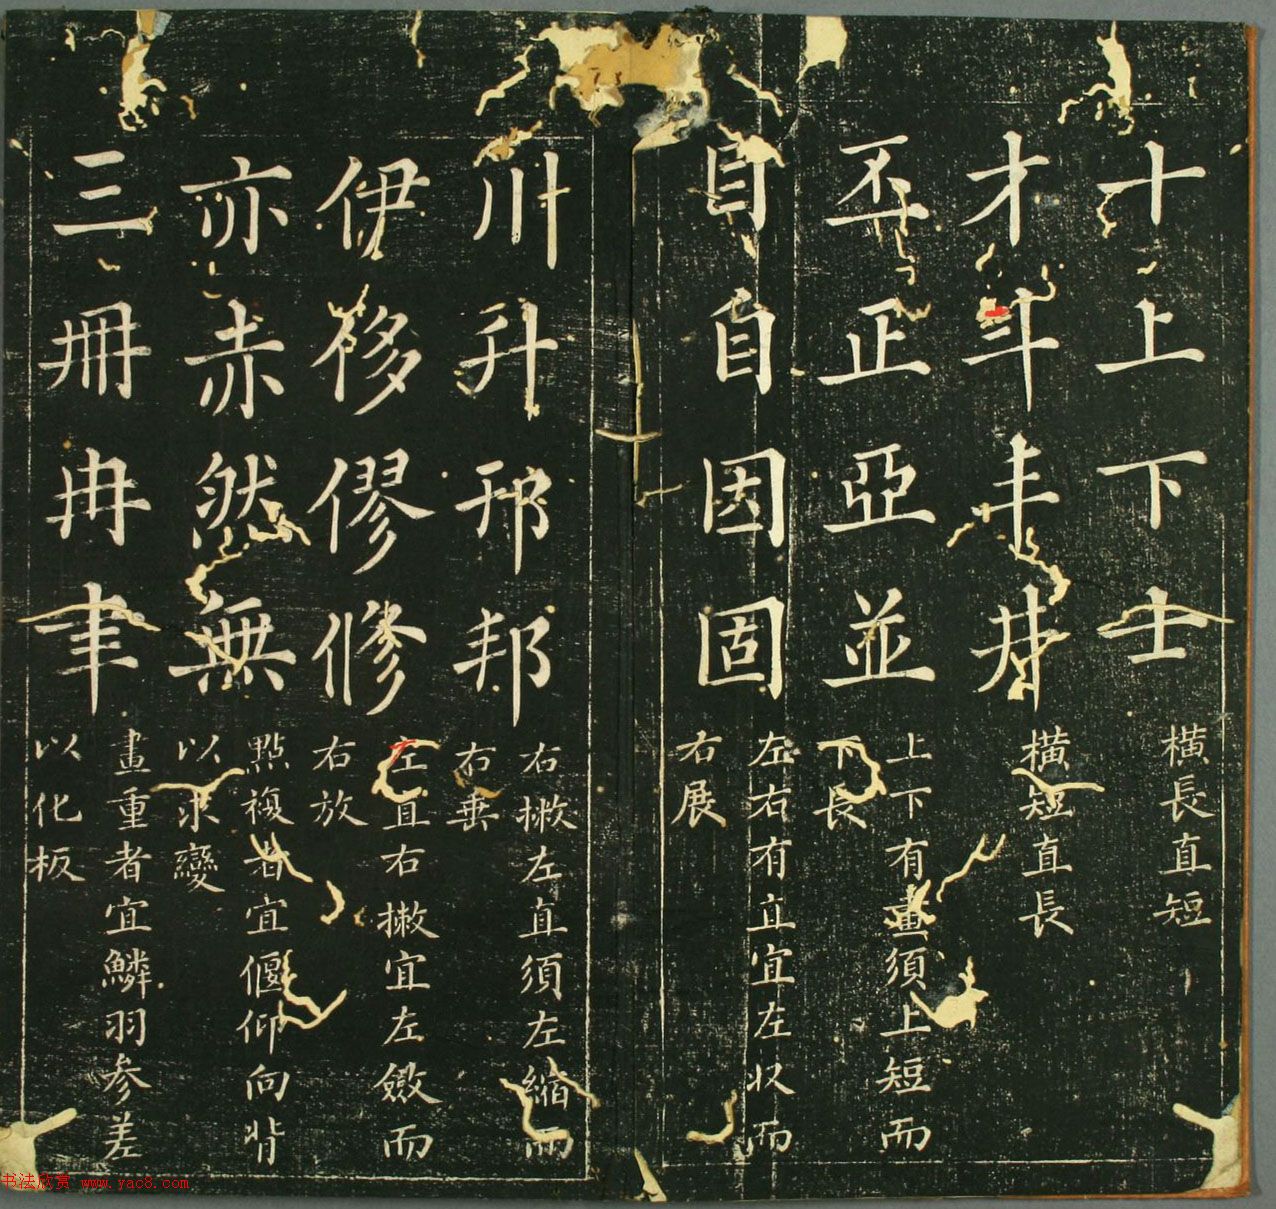 十上下士
橫長直短
才斗丰井
橫短直長
丕正亞並
上下有畫須上短而
下長
目自因固
左右有直宜左收而
右展
川升邢邦
右撇左直須左縮而
右垂
伊侈僇修
左直右撇宜左斂而
右放
亦赤然無
點複者宜偃仰向背
以求變
三冊冉聿
畫重者宜鱗羽參差
以化板
书法欣赏 www.yac8.com